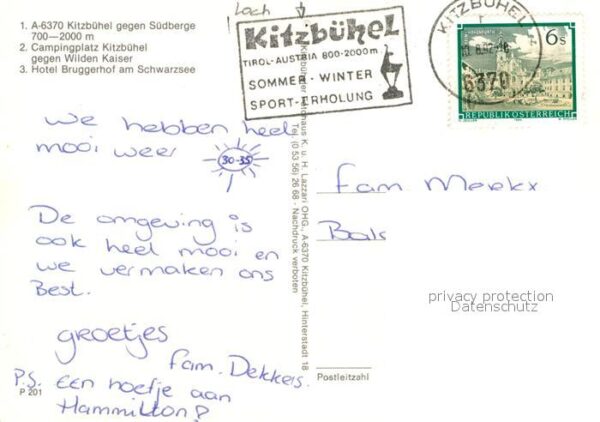 1. A-6370 Kitzbühel gegen Südberge
700—2000 m
2. Campingplatz Kitzbühel
gegen Wilden Kaiser
3. Hotel Bruggerhof am Schwarzsee
Lach
Kitzbühel
TIROL-AUSTRIA 800-2000m
SOMMER - WINTER
SPORT-ERHOLUNG
KITZBÜHEL
6370
6s
REPUBLIK ÖSTERREICH
We hebben heel
mooi weer
30-35
De omgeving is
ook heel mooi en
we vermaken ons
Best.
groetjes
fam. Dekkers.
P.S. Een hoefje aan
Hammilton?
P 201
K. u. H. Lazzari OHG., A-6370 Kitzbühel, Hinterstadt 18
Tel. (0 53 56) 26 68 - Nachdruck verboten
Fam Meekx
Bals
privacy protection
Datenschutz
Postleitzahl